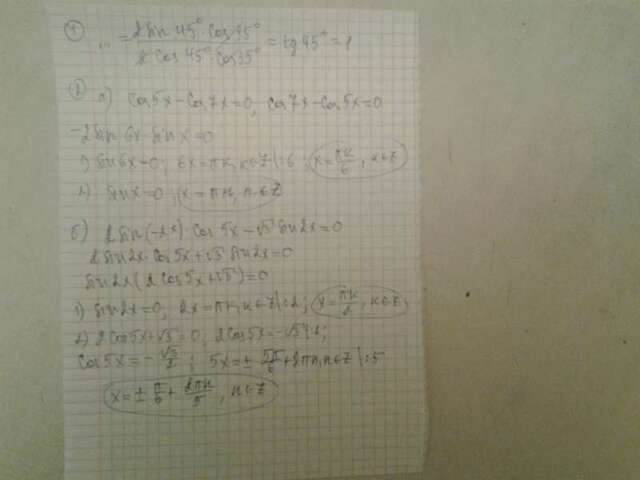 1) ... = 2 sin 45° cos 35° / 2 cos 45° · cos 35° = tg 45° = 1
2) а) cos 5x - cos 7x = 0, cos 7x - cos 5x = 0
-2 sin 6x · sin x = 0
1) sin 6x = 0, 6x = πn, n∈Z |:6; x = πn/6, n∈Z
2) sin x = 0; x = πn, n∈Z
б) 2 sin(-2x) · cos 5x - √3 sin 2x = 0
2 sin 2x · cos 5x + √3 sin 2x = 0
sin 2x (2 cos 5x + √3) = 0
1) sin 2x = 0; 2x = πn, n∈Z |:2; x = πn/2, n∈Z;
2) 2 cos 5x + √3 = 0; 2 cos 5x = -√3 |:2;
cos 5x = -√3/2; 5x = ± 5π/6 + 2πn, n∈Z |:5
x = ± π/6 + 2πn/5, n∈Z